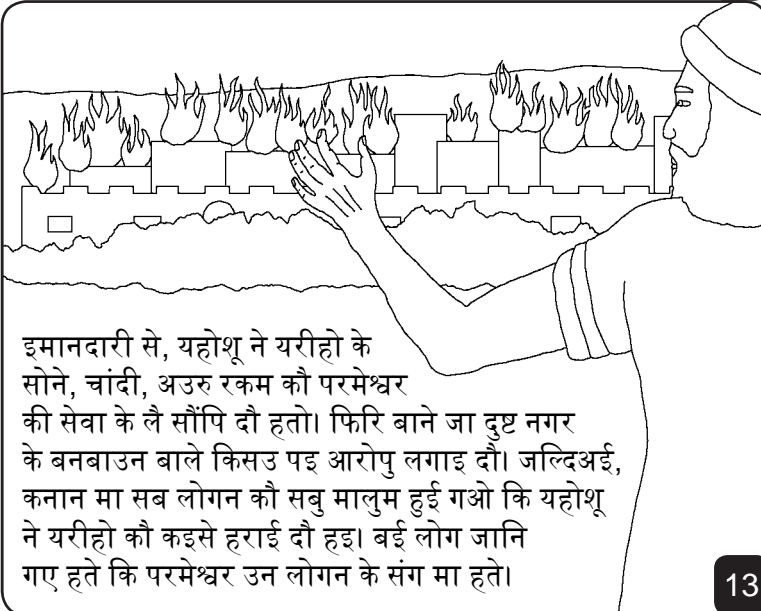 इमानदारी से, यहोशू ने यरीहो के
सोने, चांदी, अउरु रकम कौ परमेश्वर
की सेवा के लै सौंपि दौ हतो। फिरि बाने जा दुष्ट नगर
के बनबाउन बाले किसउ पइ आरोपु लगाइ दौ। जल्दिअई,
कनान मा सब लोगन कौ सबु मालुम हुई गओ कि यहोशू
ने यरीहो कौ कइसे हराई दौ हइ। बई लोग जानि
गए हते कि परमेश्वर उन लोगन के संग मा हते।
13